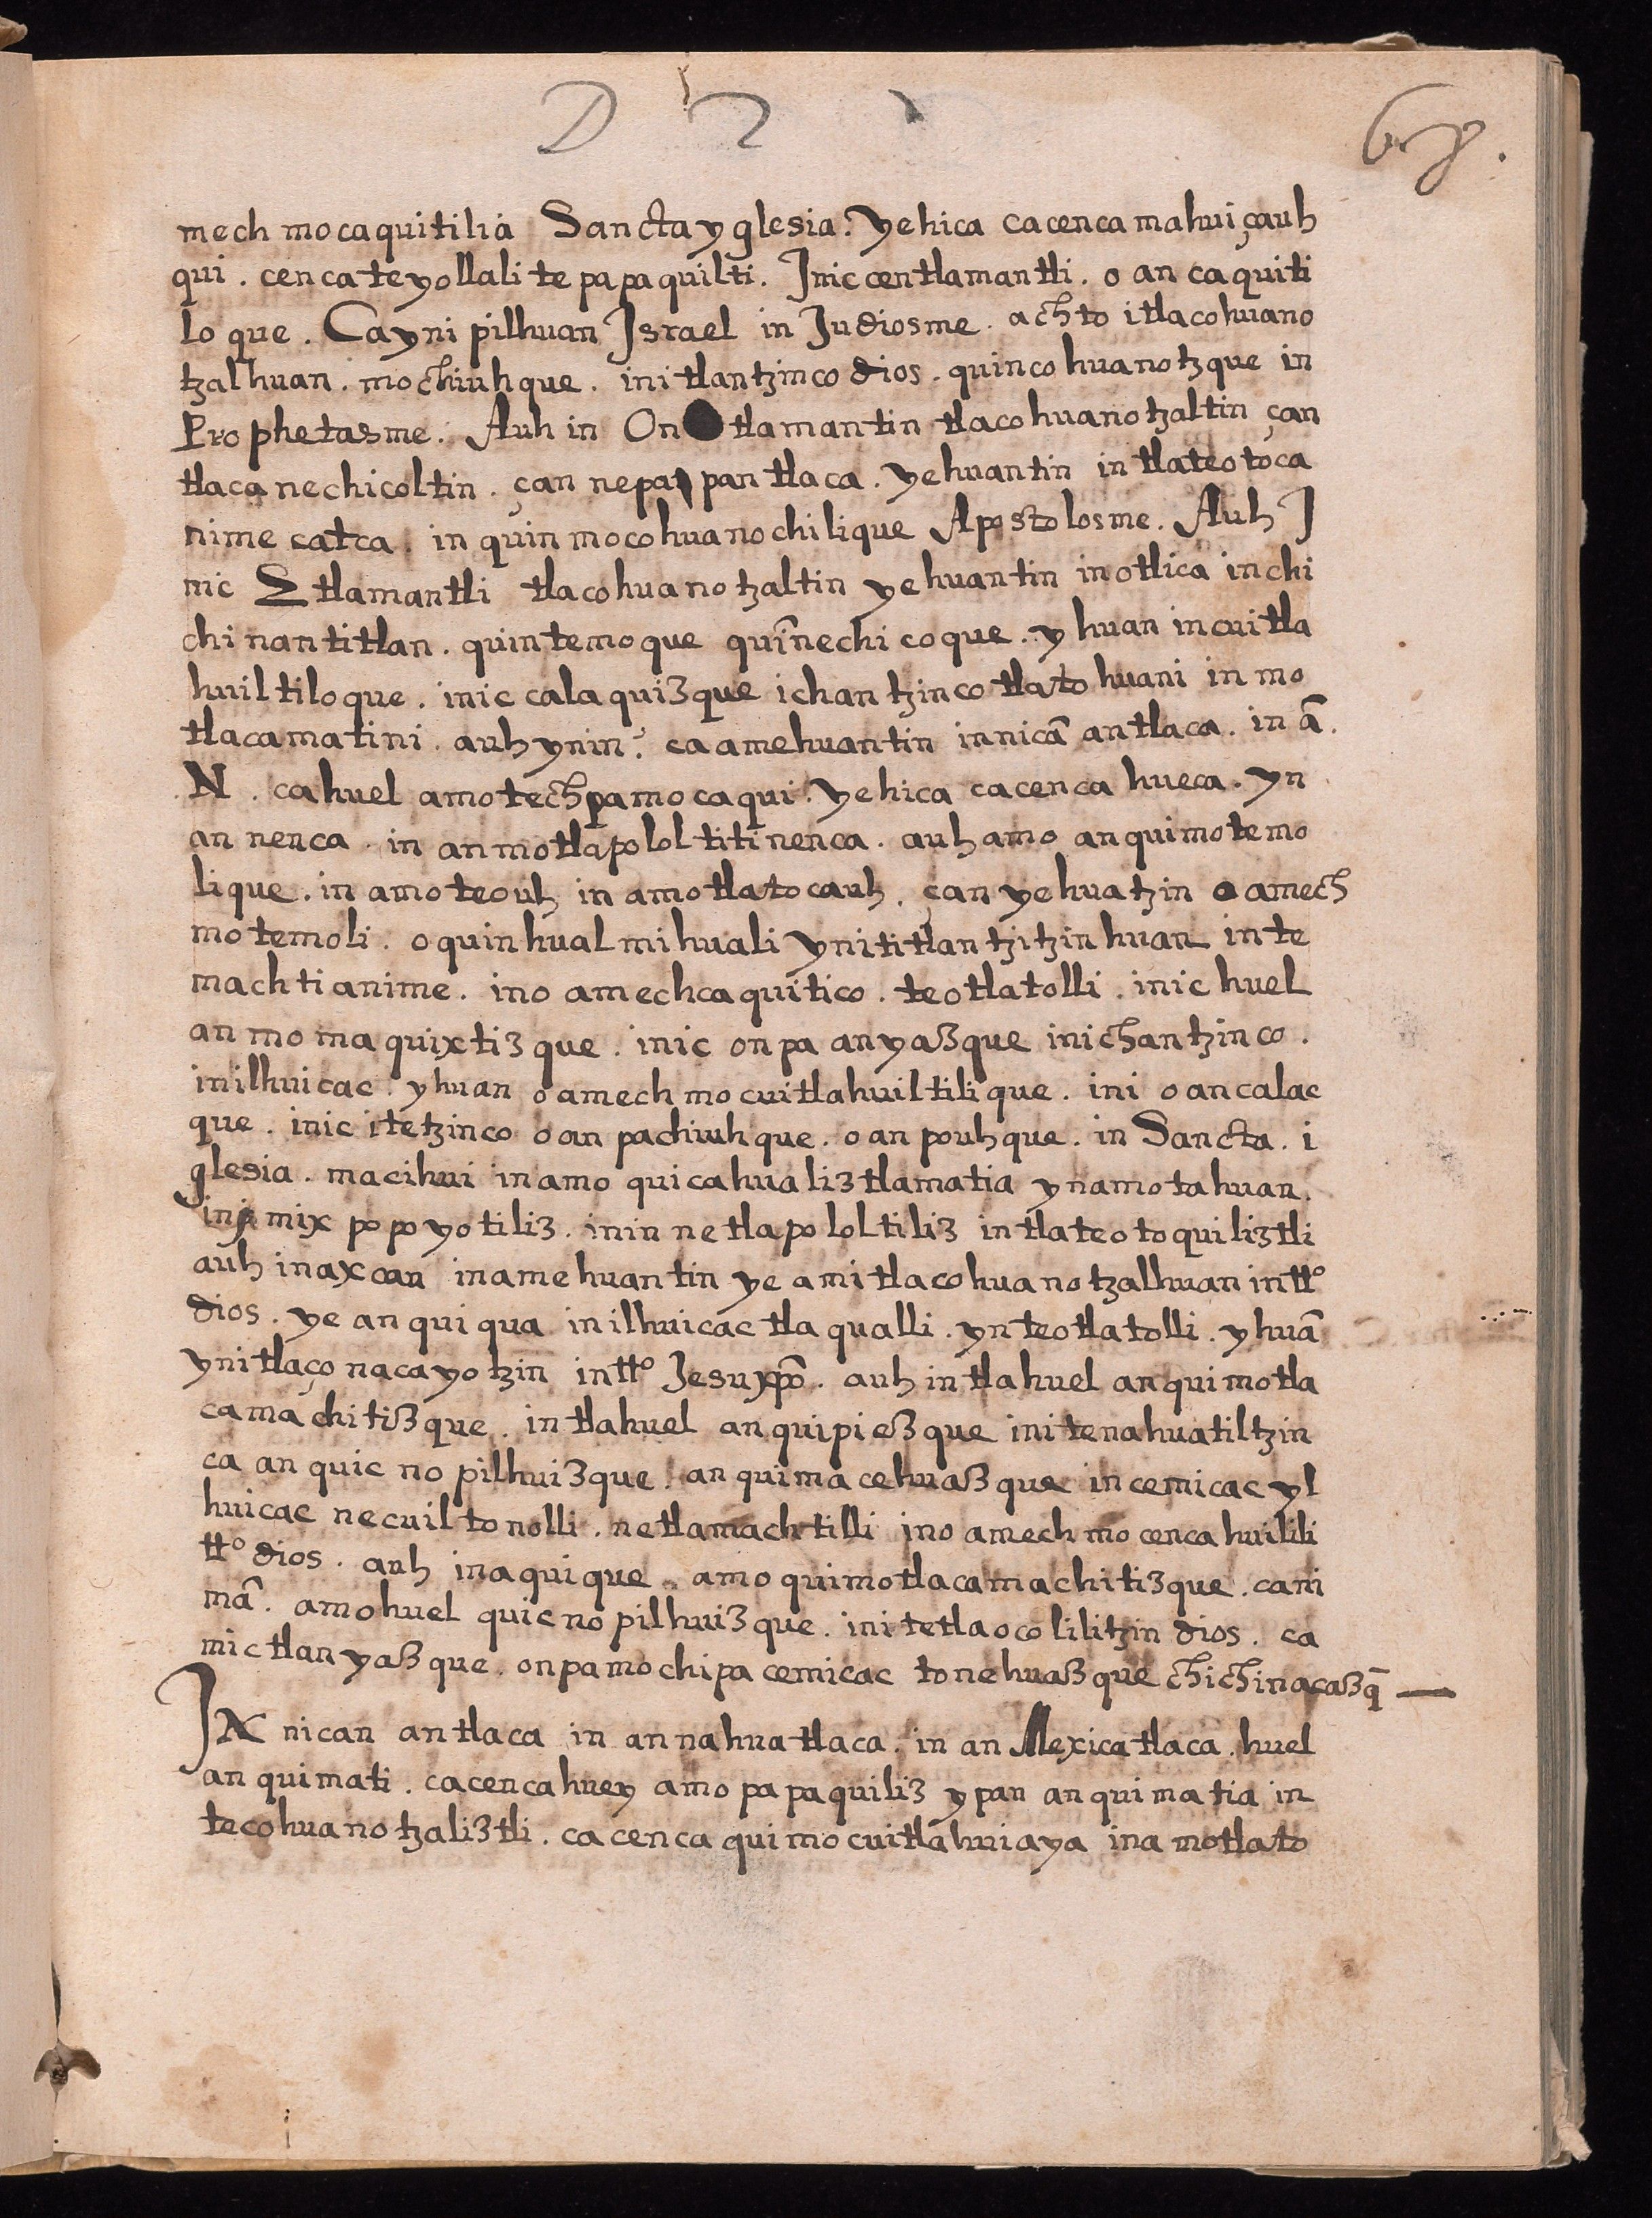 D 2
67.
mech mocaquitilia Sancta yglesia. Yehica cacenca mahuiçauh
qui. cenca teyollali tepapaquilti. Inic centlamantli. o an caquiti
lo que. Cayni pilhuan Israel in Judiosme. achto itlacohuano
tzalhuan. mochiuhque. initlantzinco dios. quincohuanotzque in
Prophetasme. Auh in On tlamantin tlacohuanotzaltin çan
tlaca nechicoltin. çan nepapan tlaca. yehuantin in tlateotoca
nime catca. in quin mocohuanochilique Apostolosme. Auh I
nic 3 tlamantli tlacohuanotzaltin yehuantin inotlica inchi
chinantitlan. quintemoque quīnechicoque. yhuan incuitla
huiltiloque. inic calaquizque ichantzinco tlatohuani in mo
tlacamatini. auh ynin. ca amehuantin innicā antlaca. in ā.
N. cahuel amotechpa mocaqui. Yehica cacenca hueca. yn
an nenca. in anmotlapololtitinenca. auh amo anquimotemo
lique. in amoteouh in amotlatocauh. çan yehuatzin oamech
motemoli. oquinhualmihuali ynititlantzitzinhuan inte
machtianime. ino amechcaquitico. teotlatolli. inic huel
anmomaquixtizque. inic onpa anyazque inichantzinco.
inilhuicac. yhuan oamechmocuitlahuiltilique. ini oancalac
que. inic itetzinco oanpachiuhque. oanpouhque. in Sancta. i
glesia. macihui inamo quicahualiztlamatia ynamotahuan.
in mixpopoyotiliz. inin netlapololtiliz intlateotoquiliztli
auh inaxcan inamehuantin ye amitlacohuanotzalhuan intto
dios. ye anquiqua inilhuicac tlaqualli. ynteotlatolli. yhuā
ynitlaçonacayotzin intto Jesu xpō. auh intlahuel anquimotla
camachitizque. intlahuel anquipiezque initenahuatiltzin
ca anquicnopilhuizque. anquimacehuazque incemicac yl
huicac necuiltonolli. netlamachtilli ino amechmocencahuilili
tto dios. auh inaquique. amo quimotlacamachitizque. cani
mā. amohuel quicnopilhuizque. initetlaocolilitzin dios. ca
mictlan yazque. onpa mochipa cemicac tonehuazque chichinacazq̄
IN nican antlaca in annahuatlaca. in an Mexicatlaca. huel
anquimati. cacencahuey amopapaquiliz ypan anquimatia in
tecohuanotzaliztli. cacenca quimocuitlahuiaya inamotlato